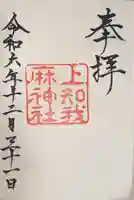 奉拝
上知我
麻神社
令和六年十二月三十一日